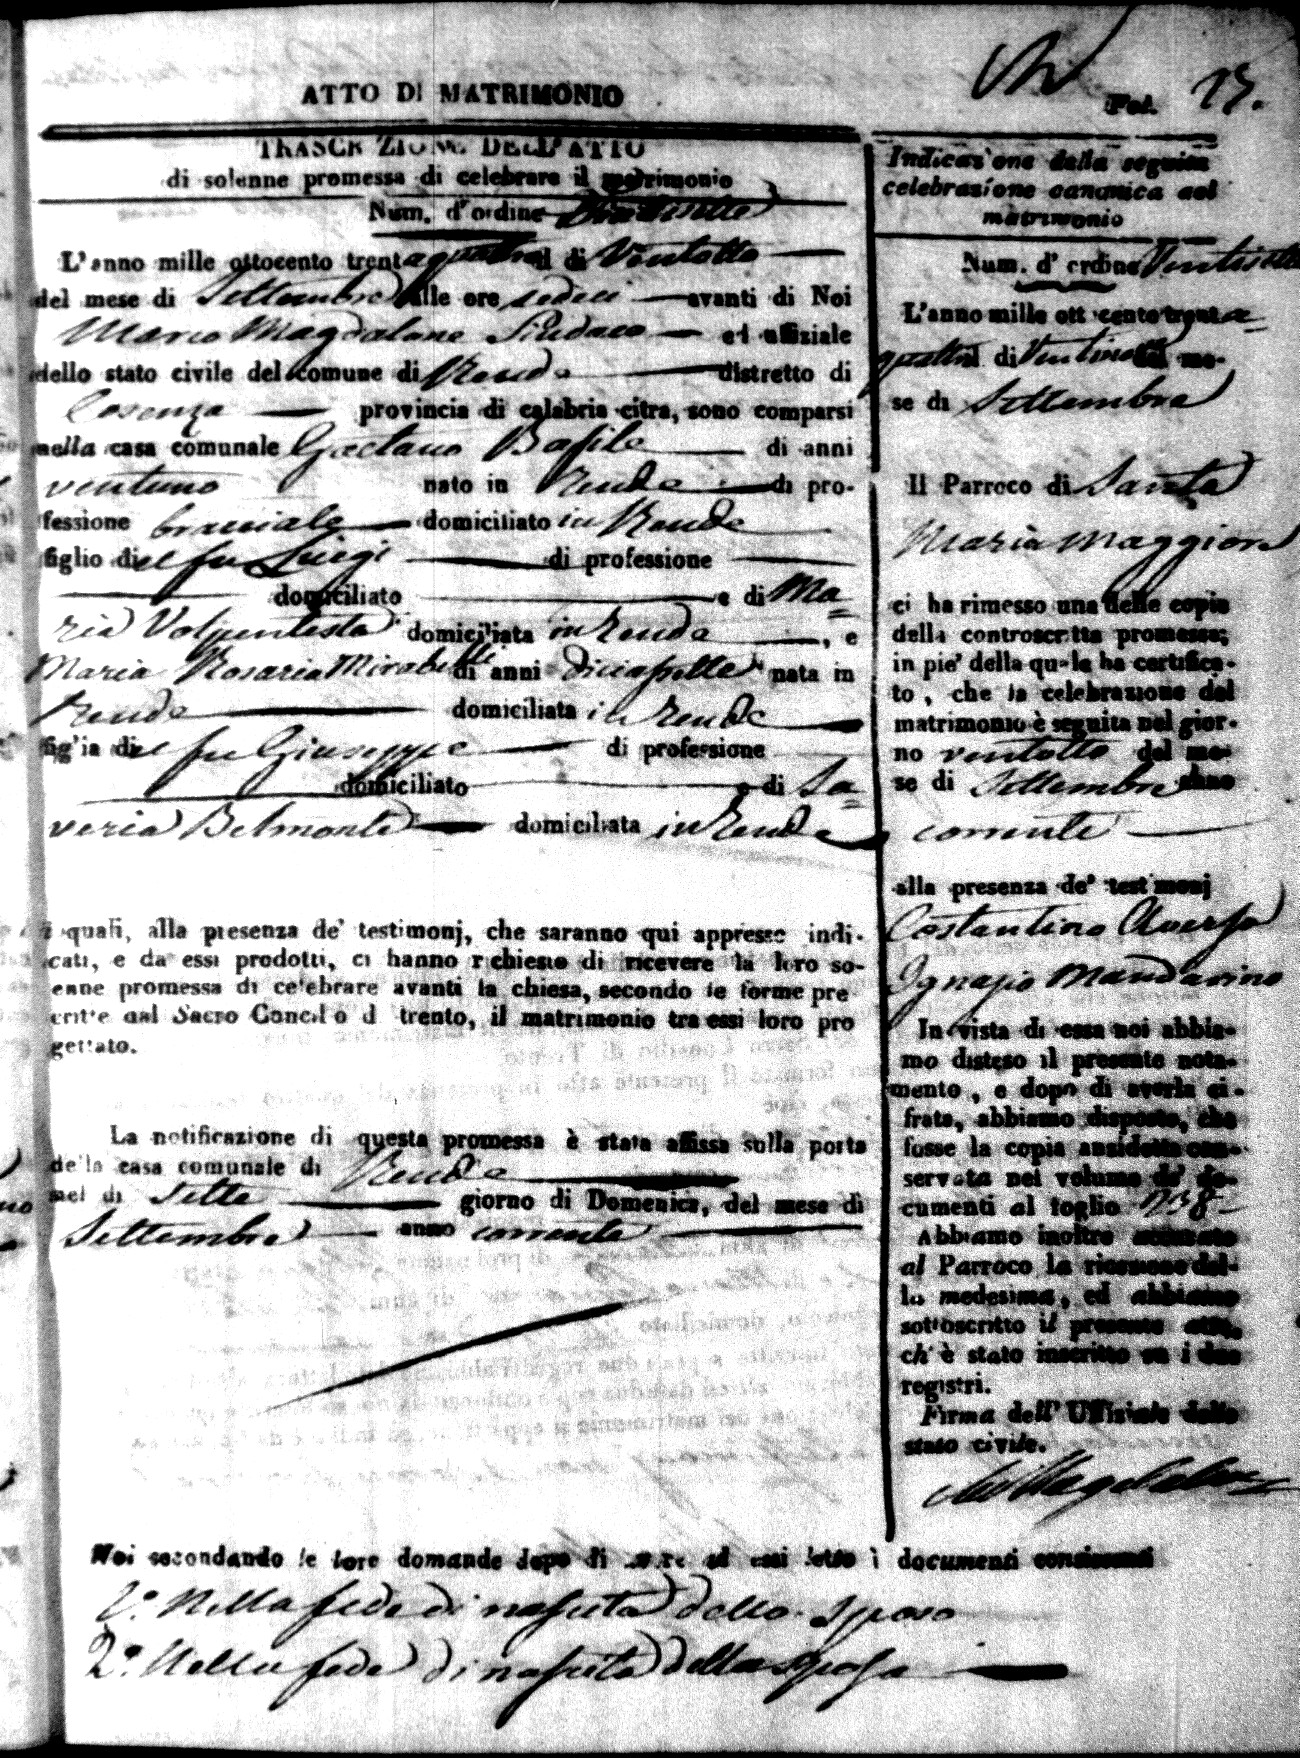 ATTO DI MATRIMONIO
Fol. 15.
TRASCRIZIONE DELL'ATTO
di solenne promessa di celebrare il matrimonio
Num. d'ordine
L'anno mille ottocento trentaquattro il di Ventotto
del mese di Settembre alle ore sedeci avanti di Noi
Marco Magdalone Sindaco ed uffiziale
dello stato civile del comune di Rende distretto di
Cosenza provincia di calabria citra, sono comparsi
nella casa comunale Gaetano Basile di anni
ventuno nato in Rende di pro-
fessione bracciale domiciliato in Rende
figlio del fu Luigi di professione
domiciliato e di Ma=
ria Volpentesta domiciliata in Rende, e
Maria Rosaria Mirabelli di anni diciassette nata in
Rende domiciliata in Rende
figlia del fu Giuseppe di professione
domiciliato e di Sa=
veria Belmonte domiciliata in Rende
i quali, alla presenza de' testimonj, che saranno qui appresso indi-
cati, e da essi prodotti, ci hanno richiesto di ricevere la loro so-
enne promessa di celebrare avanti la chiesa, secondo le forme pre
critte dal Sacro Concilo d trento, il matrimonio tra essi loro pro
gettato.
La notificazione di questa promessa è stata affissa sulla porta
della casa comunale di Rende
nel di sette giorno di Domenica, del mese di
Settembre anno corrente
Indicazione della seguita
celebrazione canonica del
matrimonio
Num. d' ordine Ventisette
L'anno mille ottocento trenta=
quattro il di Ventinove del me-
se di Settembre
Il Parroco di Santa
Maria Maggiore
ci ha rimesso una delle copie
della controscritta promessa;
in pie' della quale ha certifica-
to, che la celebrazione del
matrimonio è seguita nel gior-
no ventotto del me-
se di Settembre anno
corrente
alla presenza de' testimonj
Costantino Aversa
Ignazio Mandarino
In vista di essa noi abbia-
mo disteso il presente nota-
mento, e dopo di averla ci-
frata, abbiamo disposto, che
fosse la copia anzidetta con-
servata nel volume de' do-
cumenti al foglio
Abbiamo inoltre accusato
al Parroco la ricezione del-
la medesima, ed abbiamo
sottoscritto il presente atto,
ch' è stato inscritto su i due
registri.
Firma dell' Uffiziale dello
stato civile.
Noi secondando le loro domande dopo di aver ad essi letto i documenti consistenti
1.° Nella fede di nascita dello sposo
2.° Nella fede di nascita della sposa